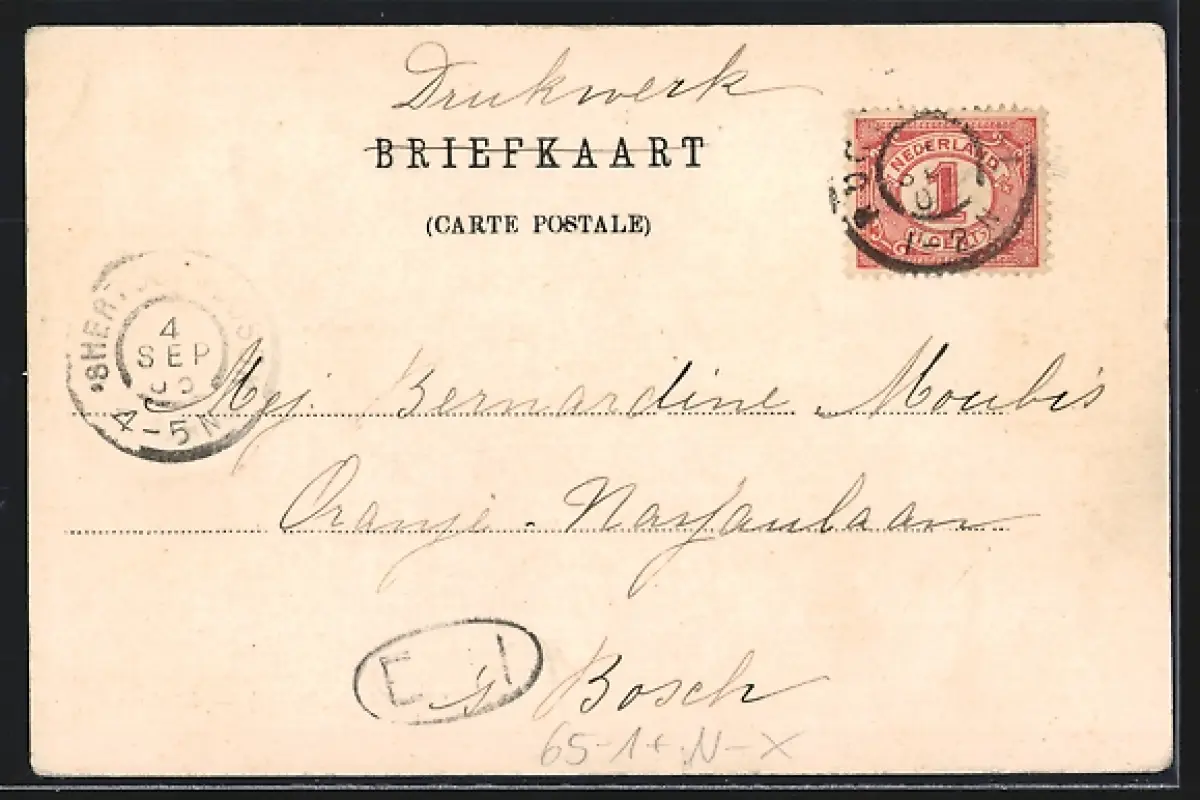 Drukwerk
BRIEFKAART
(CARTE POSTALE)
NEDERLAND
1
4
SEP
4-5N
Mej. Bernardine Moubis
Oranje-Nassaulaan
's Bosch
65-1+.N-X